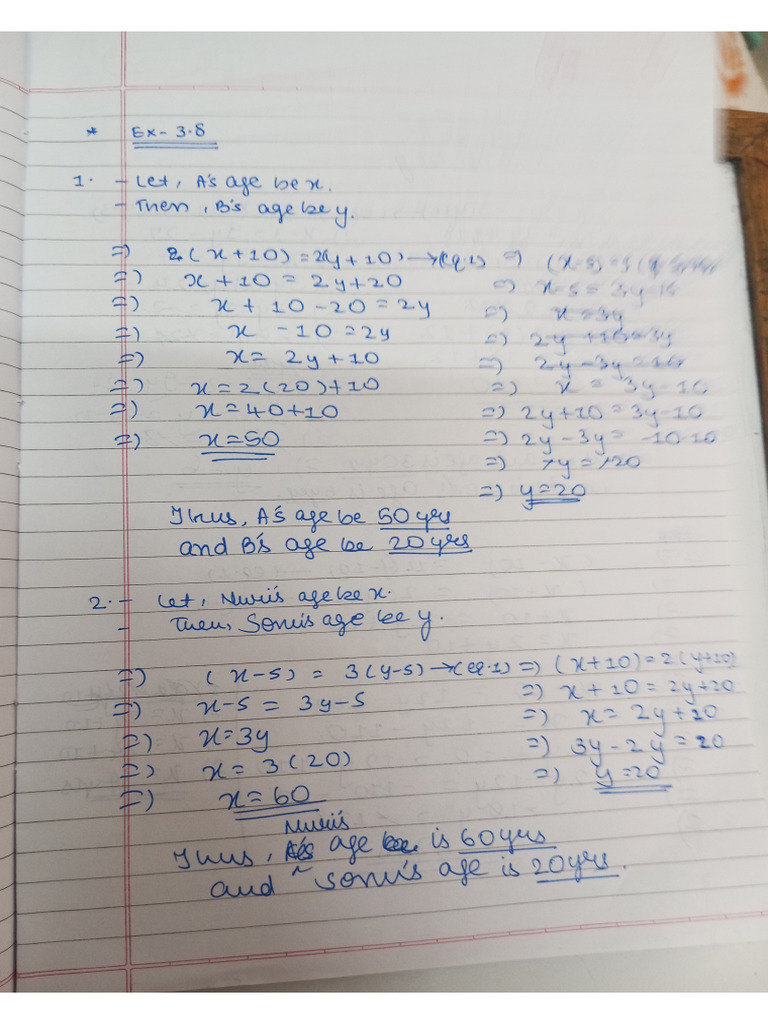 * Ex - 3.8
1. - Let, A's age be x.
- Then, B's age be y.
=) (x+10) = 2(y+10) → (eq.1) =) (x-5) = 3(
=) x + 10 = 2y + 20 =) x-5 = 3y-15
=) x + 10 - 20 = 2y =) x = 3y
=) x - 10 = 2y =) 2y + 10 = 3y
=) x = 2y + 10 =) 2y - 3y = 10
=) x = 2(20) + 10 =) x = 3y - 10
=) x = 40 + 10 =) 2y + 10 = 3y - 10
=) x = 50 =) 2y - 3y = -10-10
=) -y = -20
=) y = 20
Thus, A's age be 50 yrs
and B's age be 20 yrs
2. - Let, Nuri's age be x.
- Then, Sonu's age be y.
=) (x-5) = 3(y-5) → (eq.1) =) (x+10) = 2(y+10)
=) x-5 = 3y-5 =) x + 10 = 2y + 20
=) x = 3y =) x = 2y + 10
=) x = 3(20) =) 3y - 2y = 20
=) x = 60 =) y = 20
Nuri's
Thus, A's age be is 60 yrs
and Sonu's age is 20 yrs.